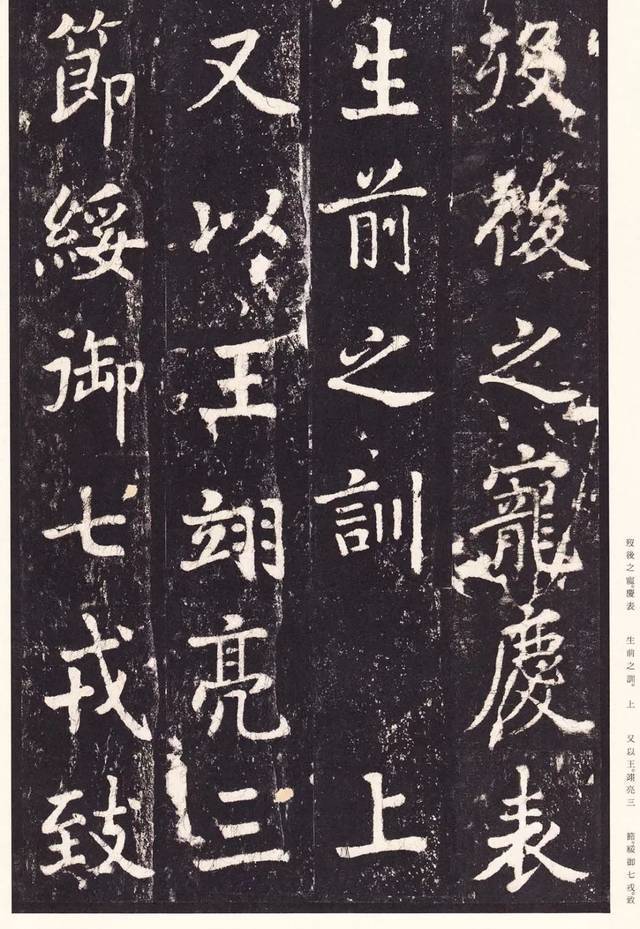 歿後之寵慶表
生前之訓 上
又以王翊亮三
節綏御七戎致
歿後之寵。慶表 生前之訓。 上 又以王。翊亮三 節。綏御七戎。致